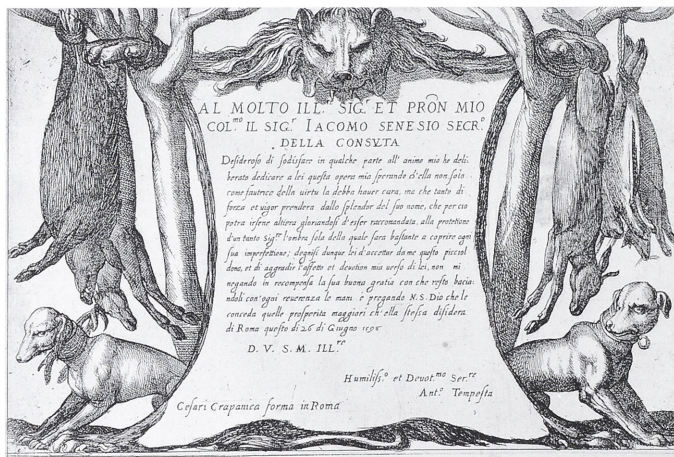 AL MOLTO ILL.re SIG.r ET PRŌN MIO
COL.mo IL SIG.r IACOMO SENESIO SECR.o
DELLA CONSVTA
Desideroso di sodisfare in qualche parte all' animo mio ho deli
berato dedicare a lei questa opera mia sperando ch'ella non solo
come fautrice della virtu la debba hauer cara, ma che tanto di
forza et uigor prendera dallo splendor del suo nome, che per cio
potra irsene altiera gloriandosi d'esser raccomandata, alla protettione
d'un tanto Sig.re l'ombra sola della quale sara bastante a coprire ogni
sua imperfettione; degnisi dunque lei d'accettar da me questo picciol
dono, et di aggradir l'affetto et deuotion mia uerso di lei, non mi
negando in recompensa la sua buona gratia con che resto bacia:
ndoli con ogni reuerenza le mani e pregando N. S. Dio che le
conceda quelle prosperita maggiori ch' ella stessa disidera
di Roma questo di 26 di Giugno
D. V. S. M. ILL.re
Humiliss.o et Deuot.mo Ser.re
Ant.o Tempesta
Cesari Crapanica forma in Roma